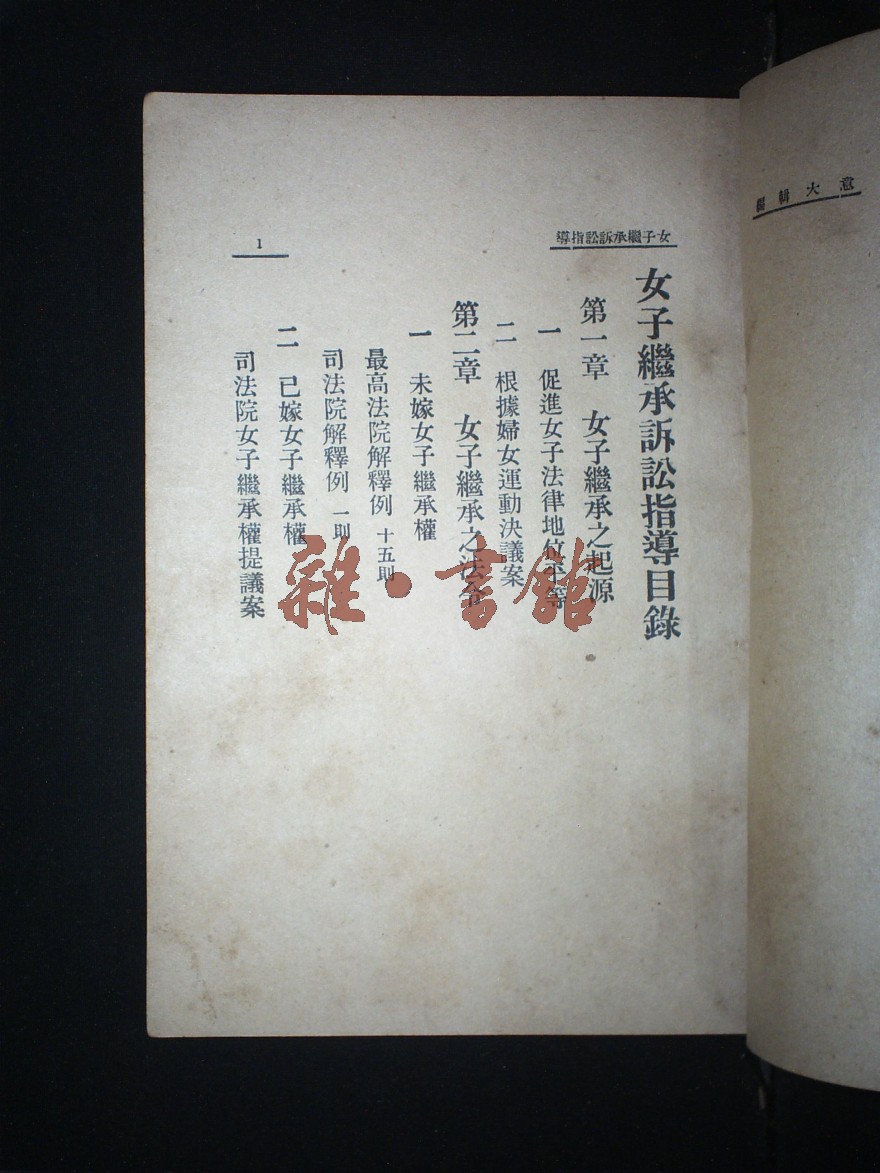 編輯大意
女子繼承訴訟指導
女子繼承訴訟指導目錄
第一章 女子繼承之起源
一 促進女子法律地位平等
二 根據婦女運動決議案
第二章 女子繼承之法令
一 未嫁女子繼承權
最高法院解釋例 十五則
司法院解釋例 一則
二 已嫁女子繼承權
司法院女子繼承權提議案
1
雜·書館